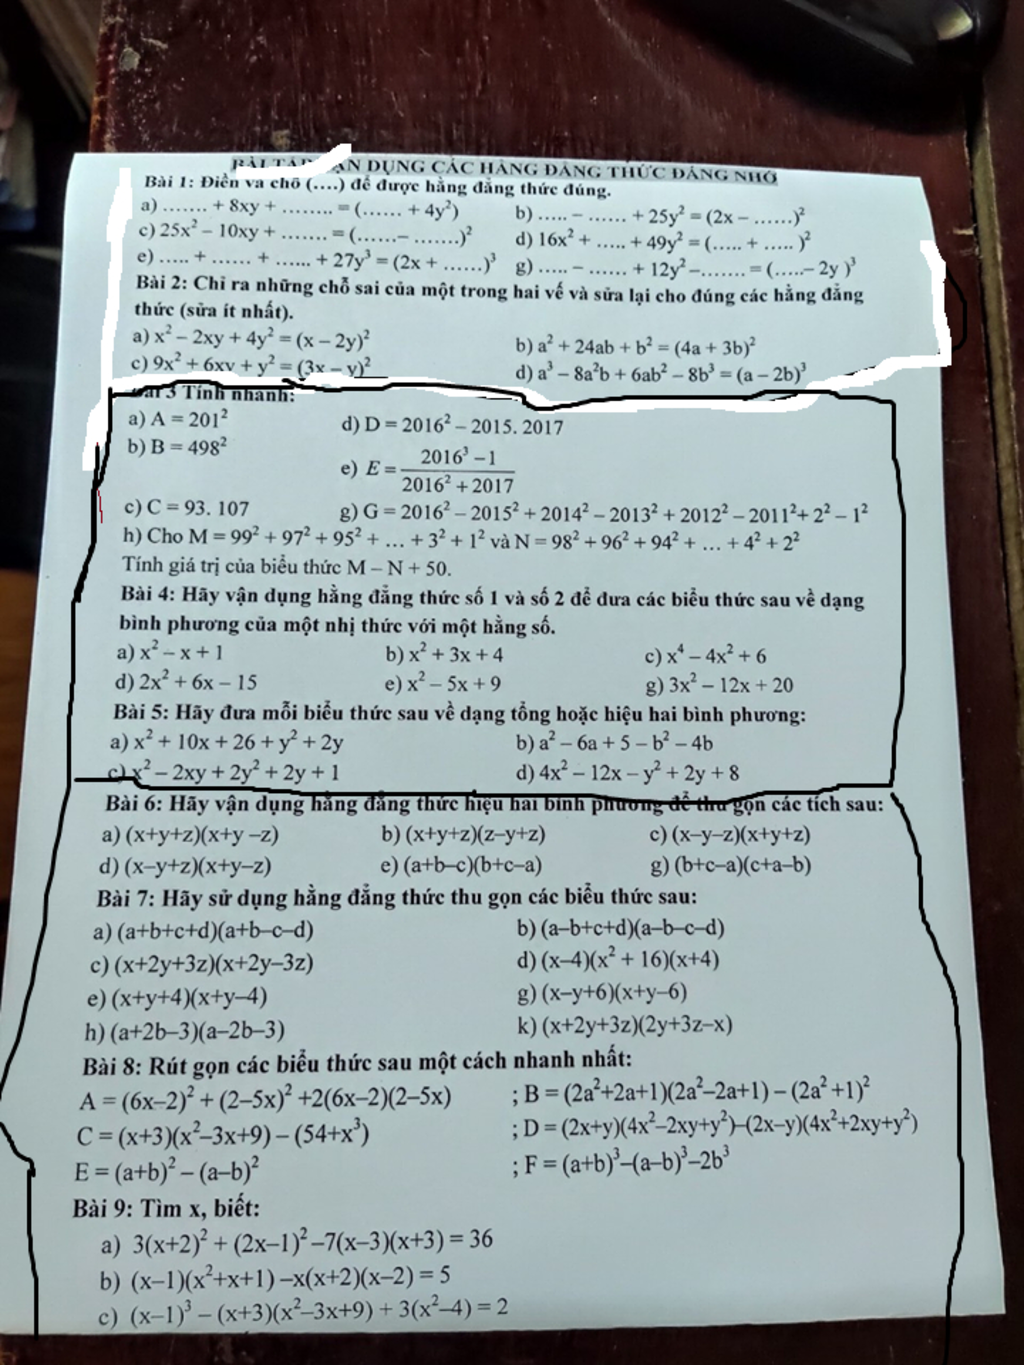 DỤNG CÁC HẰNG ĐẲNG THỨC ĐÁNG NHỚ
Bài 1: Điền và chỗ (....) để được hằng đẳng thức đúng.
a) ....... + 8xy + ........ = (...... + 4y²) b) ..... – ...... + 25y² = (2x – ......)²
c) 25x² – 10xy + ....... = (......– .......)² d) 16x² + ..... + 49y² = (..... + ..... )²
e) ..... + ...... + ...... + 27y³ = (2x + ......)³ g) ..... – ...... + 12y² –....... = (.....– 2y )³
Bài 2: Chỉ ra những chỗ sai của một trong hai vế và sửa lại cho đúng các hằng đẳng
thức (sửa ít nhất).
a) x² – 2xy + 4y² = (x – 2y)² b) a² + 24ab + b² = (4a + 3b)²
c) 9x² + 6xy + y² = (3x – y)² d) a³ – 8a²b + 6ab² – 8b³ = (a – 2b)³
Bài 3 Tính nhanh:
a) A = 201² d) D = 2016² – 2015. 2017
b) B = 498² e) E = (2016³ – 1)/(2016² + 2017)
c) C = 93. 107 g) G = 2016² – 2015² + 2014² – 2013² + 2012² – 2011²+ 2² – 1²
h) Cho M = 99² + 97² + 95² + ... + 3² + 1² và N = 98² + 96² + 94² + ... + 4² + 2²
Tính giá trị của biểu thức M – N + 50.
Bài 4: Hãy vận dụng hằng đẳng thức số 1 và số 2 để đưa các biểu thức sau về dạng
bình phương của một nhị thức với một hằng số.
a) x² – x + 1 b) x² + 3x + 4 c) x⁴ – 4x² + 6
d) 2x² + 6x – 15 e) x² – 5x + 9 g) 3x² – 12x + 20
Bài 5: Hãy đưa mỗi biểu thức sau về dạng tổng hoặc hiệu hai bình phương:
a) x² + 10x + 26 + y² + 2y b) a² – 6a + 5 – b² – 4b
c) x² – 2xy + 2y² + 2y + 1 d) 4x² – 12x – y² + 2y + 8
Bài 6: Hãy vận dụng hằng đẳng thức hiệu hai bình phương để thu gọn các tích sau:
a) (x+y+z)(x+y –z) b) (x+y+z)(z–y+z) c) (x–y–z)(x+y+z)
d) (x–y+z)(x+y–z) e) (a+b–c)(b+c–a) g) (b+c–a)(c+a–b)
Bài 7: Hãy sử dụng hằng đẳng thức thu gọn các biểu thức sau:
a) (a+b+c+d)(a+b–c–d) b) (a–b+c+d)(a–b–c–d)
c) (x+2y+3z)(x+2y–3z) d) (x–4)(x² + 16)(x+4)
e) (x+y+4)(x+y–4) g) (x–y+6)(x+y–6)
h) (a+2b–3)(a–2b–3) k) (x+2y+3z)(2y+3z–x)
Bài 8: Rút gọn các biểu thức sau một cách nhanh nhất:
A = (6x–2)² + (2–5x)² +2(6x–2)(2–5x) ; B = (2a²+2a+1)(2a²–2a+1) – (2a² +1)²
C = (x+3)(x²–3x+9) – (54+x³) ; D = (2x+y)(4x²–2xy+y²)–(2x–y)(4x²+2xy+y²)
E = (a+b)² – (a–b)² ; F = (a+b)³–(a–b)³–2b³
Bài 9: Tìm x, biết:
a) 3(x+2)² + (2x–1)² –7(x–3)(x+3) = 36
b) (x–1)(x²+x+1) –x(x+2)(x–2) = 5
c) (x–1)³ – (x+3)(x²–3x+9) + 3(x²–4) = 2